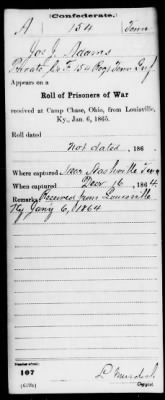 (Confederate.)
A 154 Tenn
Jos J Adams
Private, Co. F, 154 Reg't Tenn. Inf.
Appears on a
Roll of Prisoners of War
received at Camp Chase, Ohio, from Louisville,
Ky., Jan. 6, 1865.
Roll dated
Not dated, 186
Where captured Near Nashville Tenn
When captured Decr 16, 1864.
Remarks: Received from Louisville
Ky Jany 6, 1864
Number of roll:
107
(639b) Copyist.